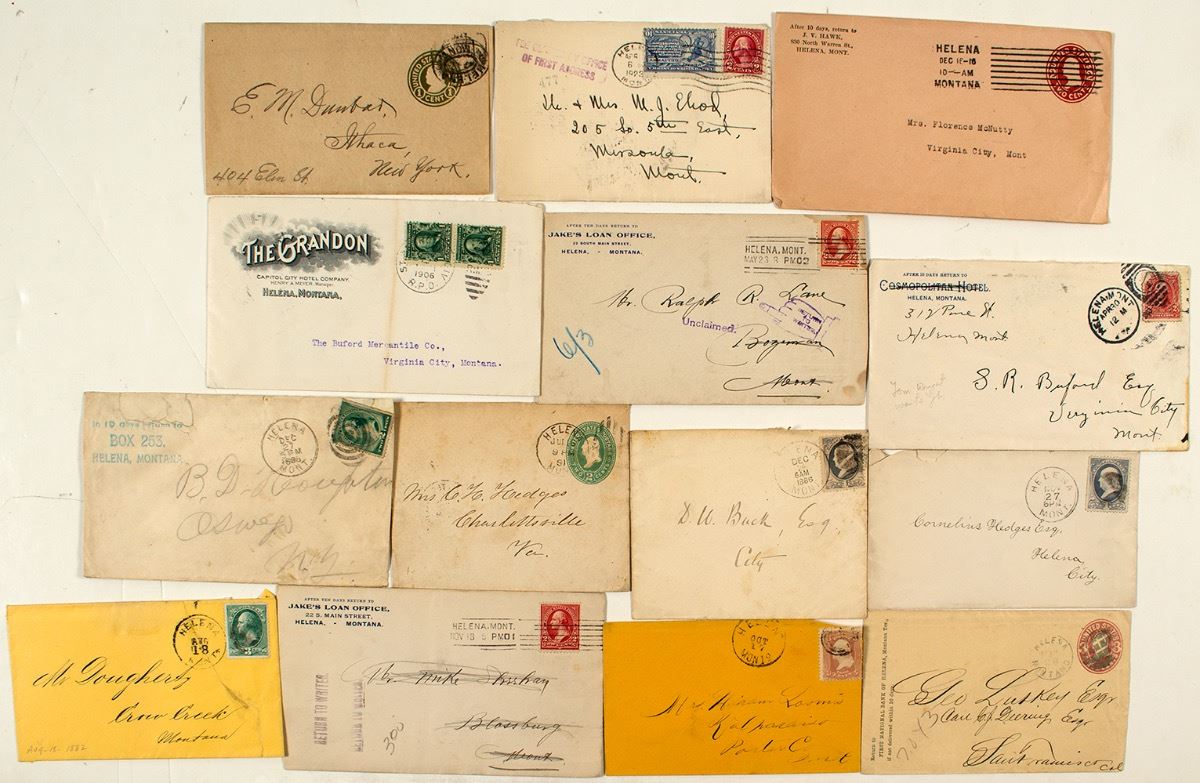 UNITED STATES
CENT
E. M. Dunbar,
Ithaca,
New York.
404 Elm St.
OF FIRST ADDRESS
477
HELENA
6
1923
MONT.
2 CENTS 2
& Mrs M. J. Elrod,
205 So. 5th East,
Missoula,
Mont.
After 10 days, return to
J. V. HAWK,
830 North Warren St.,
HELENA, MONT.
HELENA
DEC 16-16
10-AM
MONTANA
UNITED STATES
TWO CENTS
Mrs. Florence McNutty
Virginia City, Mont
THE GRANDON
CAPITOL CITY HOTEL COMPANY.
HENRY A MEYER, Manager
HELENA, MONTANA,
1906
R.P.O.
The Buford Mercantile Co.,
Virginia City, Montana.
AFTER TEN DAYS RETURN TO
JAKE'S LOAN OFFICE,
22 SOUTH MAIN STREET,
HELENA, - MONTANA.
HELENA, MONT.
MAY 23 8 PM 02
Mr. Ralph R. Lane
Unclaimed.
Bozeman
Mont.
6/3
AFTER 10 DAYS RETURN TO
COSMOPOLITAN HOTEL
HELENA, MONTANA.
312 Pine St.
Helena Mont
HELENA, MONT
APR 30
12 M
S. R. Buford Esq
Virginia City
Mont.
In 10 days return to
BOX 253.
HELENA, MONTANA
HELENA
DEC
MONT
B. D. Houghton
Oswego
N.Y.
HELENA
Mrs C. H. Hedges
Charlottsville
Va.
HELENA
DEC
6AM
1886
MONT
D. W. Buck, Esq.
City
HELENA
27
6PM
MONT.
Cornelius Hedges Esq.
Helena
City.
HELENA
AUG
18
Mr Dougherty
Crow Creek
Montana
Aug-18-1882
AFTER TEN DAYS RETURN TO
JAKE'S LOAN OFFICE,
22 S. MAIN STREET,
HELENA, - MONTANA.
HELENA, MONT.
NOV 18 5 PM 01
Mr. Mike
Blossburg
Mont
RETURN TO WRITER
RETURN TO WRITER
300
HELENA
OCT
17
MONT
Mrs Hiram Loomis
Valparaiso
Porter Co
Return to
FIRST NATIONAL BANK OF HELENA, Montana Ter,
if not delivered within 10 days
HELENA
Geo
Care of Deering, Esq
San Francisco
Cal